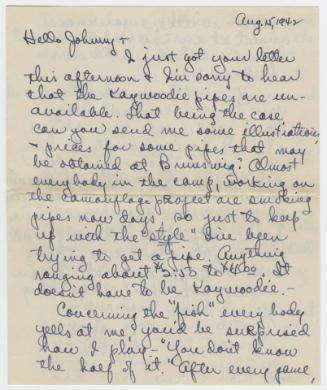 Aug. 15, 1942
Hello Johnny -
I just got your letter
this afternoon & I'm sorry to hear
that the Kaywoodie pipes are un-
available. That being the case
can you send me some illustrations
& prices for some pipes that may
be obtained at Brunswig? Almost
everybody in the camp, working on
the camouflage project are smoking
pipes now days, so just to keep
up with the "style" I've been
trying to get a pipe. Anything
ranging about $3.50 to $4.00. It
doesn't have to be Kaywoodie. -
Concerning the "fish" every body
yells at me, you'd be surprised
how I play - "You don't know
the half of it." After every game,